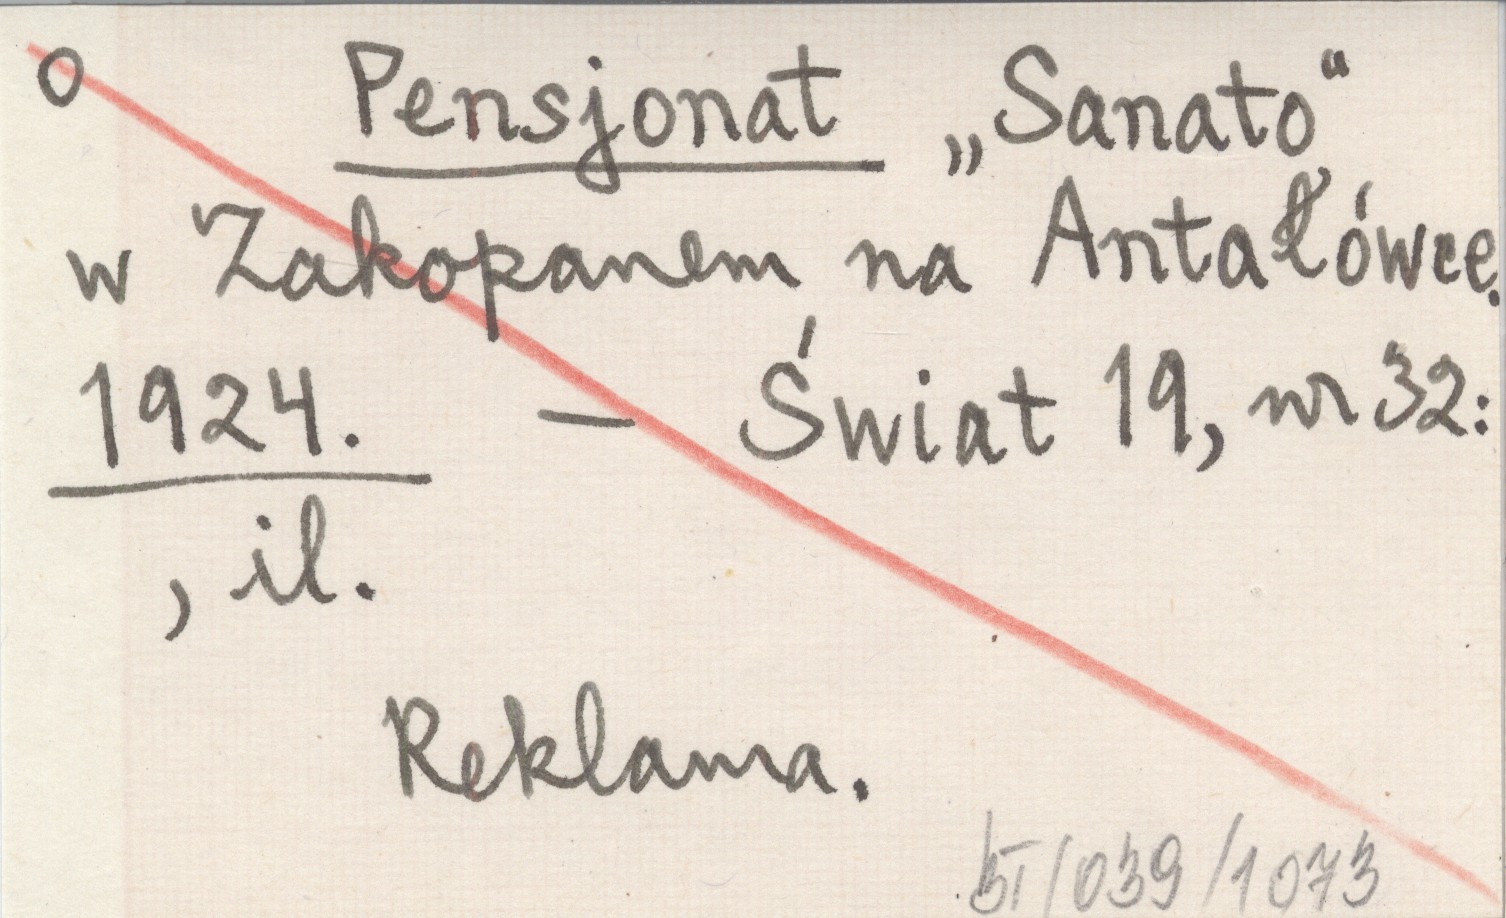 O Pensjonat „Sanato“
w Zakopanem na Antałówce.
1924. — Świat 19, nr 32:
, il.
Reklama.
/039/1073